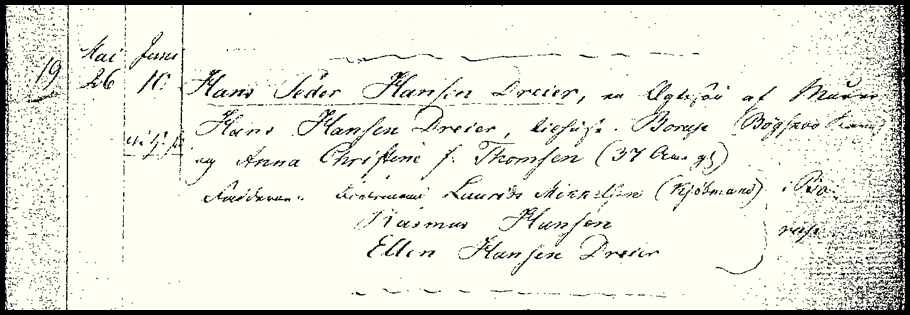 Mai Juni
19 26 10. Hans Peder Hansen Dreier, en Ægtesøn af Murer
Hans Hansen Dreier, Borup
og Anna Christine f. Thomsen (37 Aar gl)
Faddere. Laurids Mikkelsen (Kjøbmand) i Bo-
Rasmus Hansen rup.
Ellen Hansen Dreier